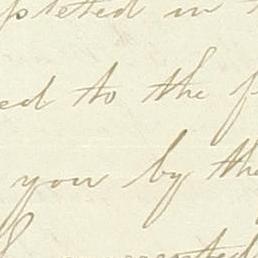 pleted in
ed to the
you by the